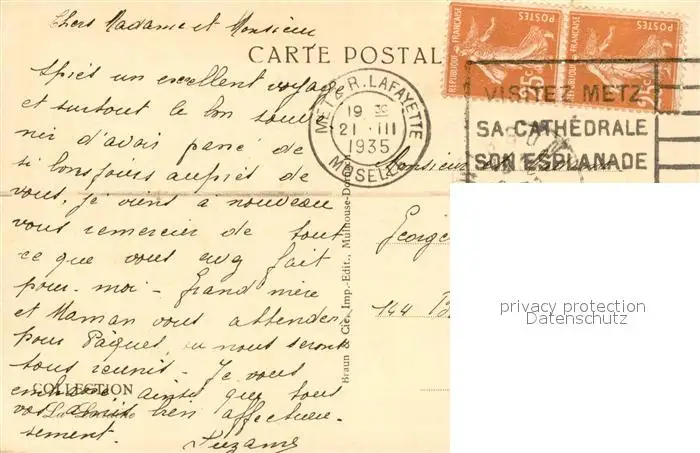 Chers Madame et Monsieur
CARTE POSTAL
Après un excellent voyage
et surtout le bon souve
nir d'avoir passé de
si bons jours auprès de
vous, je viens à nouveau
vous remercier de tout
ce que vous avez fait
pour moi - Grand mère
et Maman vous attendent
pour Pâques, ou nous serons
tous réunis - Je vous
embrasse ainsi que tous
vos amis bien affectueu-
sement.
Suzanne
COLLECTION
La
Braun & Cie, Imp.-Edit., Mulhouse-Dornach
METZ R. LAFAYETTE
19
21 III
1935
MOSELLE
REPUBLIQUE FRANÇAISE
POSTES
25c
REPUBLIQUE FRANÇAISE
POSTES
25c
VISITEZ METZ
SA CATHÉDRALE
SON ESPLANADE
Monsieur
George
144
privacy protection
Datenschutz